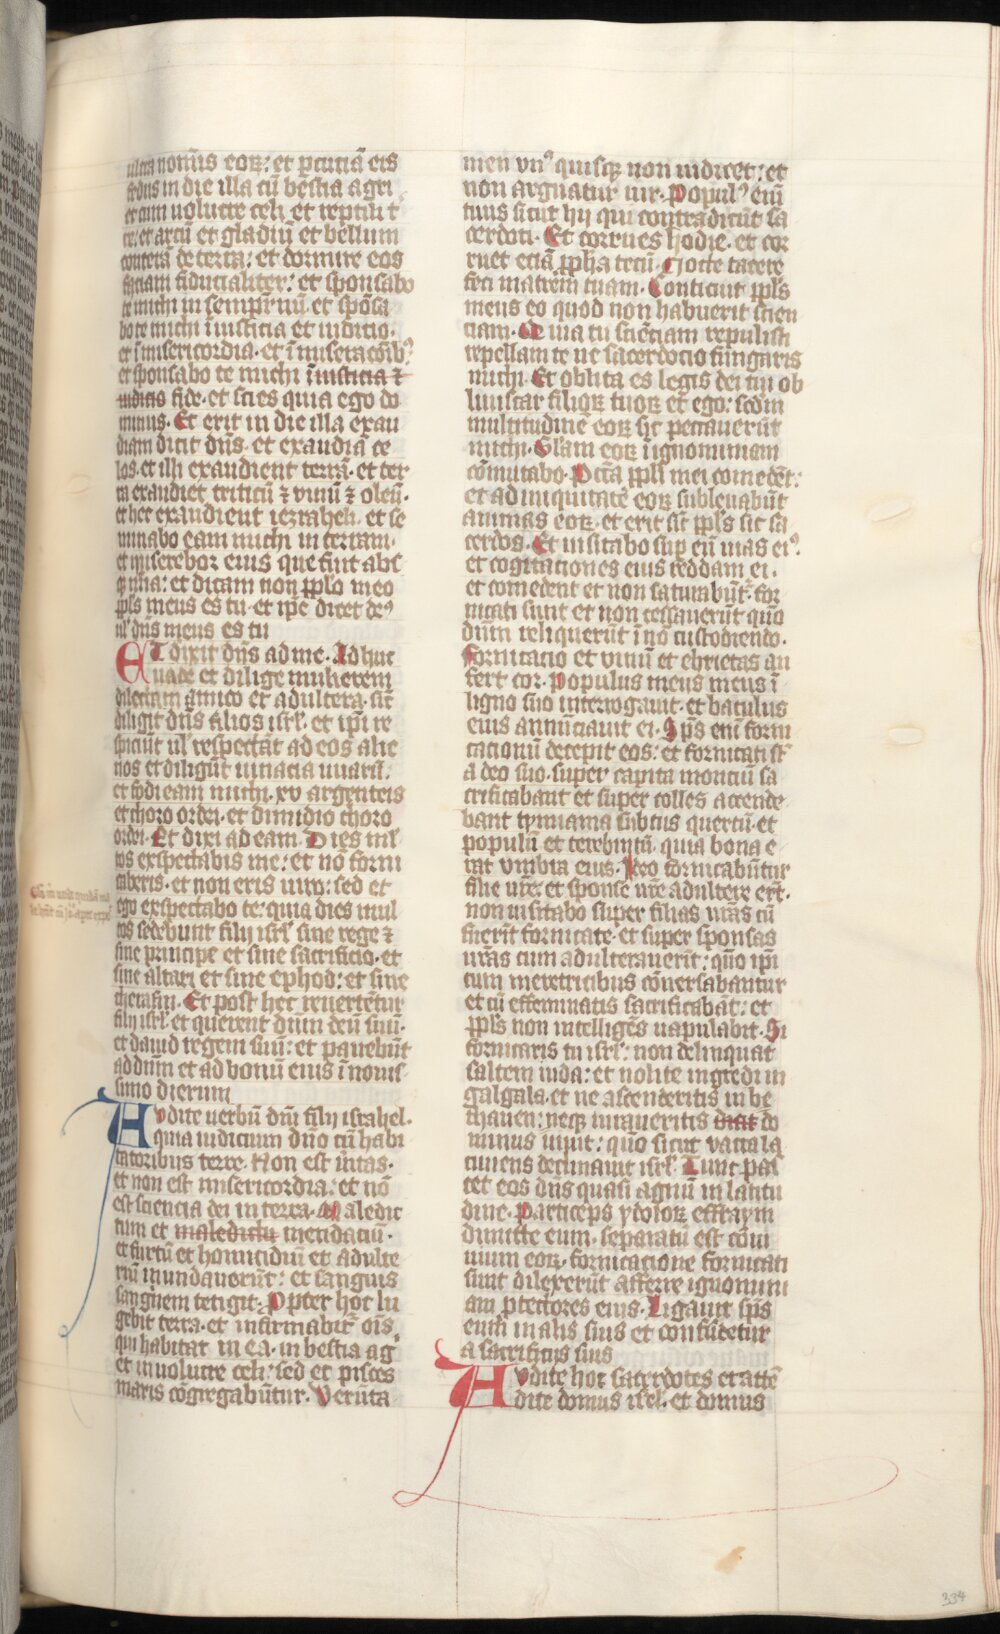 ultra nominis eorꝝ: et ꝑcutiā eis
fedus in die illa cū bestia agri
et cum uolucre celi et reptili t̄
re: et arcū et gladiū et bellum
conterā de terra: et dormire eos
faciam fiducialiter: et sponsabo
te michi in sempitnū. et spōsa
bo te michi ī iusticia et iudicio.
et ī misericordia. et ī miseracōibꝰ
et sponsabo te michi ī iusticia ⁊
iudicio fide. et scies quia ego do
minus. Et erit in die illa exau
diam dicit dn̄s. et exaudiā ce
los. et illi exaudient terrā. et ter
ra exaudiet triticū ⁊ vinū ⁊ oleū.
et hec exaudient iezrahel. et se
minabo eam michi in terram.
et miserebor eius que fuit abſ
qꝫ mia: et dicam non pplo meo
ppls meus es tu. et ipe dicet deꝰ
dn̄s meus es tu
ET dixit dn̄s ad me. Ad huc
uade et dilige mulierem
dilectam amico et adulterā. sic̄
diligit dn̄s filios isrl̄. et ipi re
spiciūt ul respectāt ad eos alie
nos et diligūt uinacia uuarū.
et fodi eam michi. xv argenteis
et choro ordei. et dimidio choro
ordei. Et dixi ad eam. Dies ml̄
tos exspectabis me: et nō forni
caberis. et non eris uiro: sed et
ego exspectabo te: quia dies mul
tos sedebunt filij isrl̄ sine rege ⁊
sine principe et sine sacrificio. et
sine altari et sine ephod: et sine
therafin. Et post hec reuertētur
filij isrl̄. et querent dn̄m deū suū.
et dauid regem suū: et pauebūt
ad dn̄m et ad bonū eius ī nouiſ
simo dierum
Audite uerbū dn̄i filij israhel.
quia iudicium dn̄o cū habi
tatoribus terre. Non est ūitas.
et non est misericordia: et nō
est sciencia dei in terra. Maledic
tum et maledictū mendaciū.
et furtū et homicidiū et adulte
riū inundauerūt: et sanguis
sanguinem tetigit. Ꝓpter hoc lu
gebit terra. et infirmabit̄ oīs
qui habitat in ea. in bestia ag
et in uolucre celi: sed et pisces
maris cōgregabūtur. Veruta
men vnꝰ quisqꝫ non iudicet: et
non arguatur uir. Populꝰ enī
tuus sicut hij qui contradicūt sa
cerdoti. Et corrues hodie. et cor
ruet eciā ꝓpha tecū. Nocte tacere
feci matrem tuam. Conticuit ppls
meus eo quod non habuerit scien
ciam. Quia tu sciēciam repulisti
repellam te ne sacerdocio fungaris
michi. Et oblita es legis dei tui ob
liuiscar filioꝝ tuoꝝ et ego: scdm
multitudinē eoꝝ sic peccauerūt
michi. Glam eoꝝ ī ignominiam
cōmutabo. Pctā ppli mei comedēt:
et ad iniquitatē eoꝝ subleuabūt
animas eoꝝ. et erit sic̄ ppls sic sa
cerdos. Et uisitabo sup eū uias eiꝰ.
et cogitationes eius reddam ei.
et comedent et non saturabūt̄. for
nicati sunt et non cessauerūt quō
dn̄m reliquerūt ī nō custodiendo.
Fornicacio et vinū et ebrietas au
fert cor. Populus meus meus ī
ligno suo interrogauit. et baculus
eius annūciauit ei. Sp̄s enī forni
cacionū decepit eos: et fornicati sūt
a deo suo. super capita monciū sa
crificabant et super colles accende
bant tymiama subtus quercū. et
populū et terebintū. quia bona e
rat vmbra eius. Ideo fornicabūtur
filie ur̄e: et sponse ur̄e adultere erūt.
non uisitabo super filias ur̄as cū
fuerīt fornicate. et super sponsas
ur̄as cum adulterauerīt: quō ipi
cum meretricibus cōuersabantur
et cū effeminatis sacrificabāt: et
ppls non intelligēs uapulabit. Si
fornicaris tu isrl̄: non delinquat
saltem iuda: et nolite ingredi in
galgala. et ne ascenderitis in be
thauen: neqꝫ iuraueritis dicit do
minus uiuit: quō sicut vacca la
ciuiens declinauit isrl̄. Tunc pas
cet eos dn̄s quasi agnū in latitu
dine. Particeps ydoloꝝ effraym
dimitte eum. separatū est cōui
uium eoꝝ. fornicacione fornicati
sunt dilexerūt afferre ignomini
am ꝓtectores eius. Ligauit sp̄s
eum in alis suis et confūdetur
a sacrificijs suis
Audite hoc sacerdotes et attē
dite domus isrl̄. et domus
334